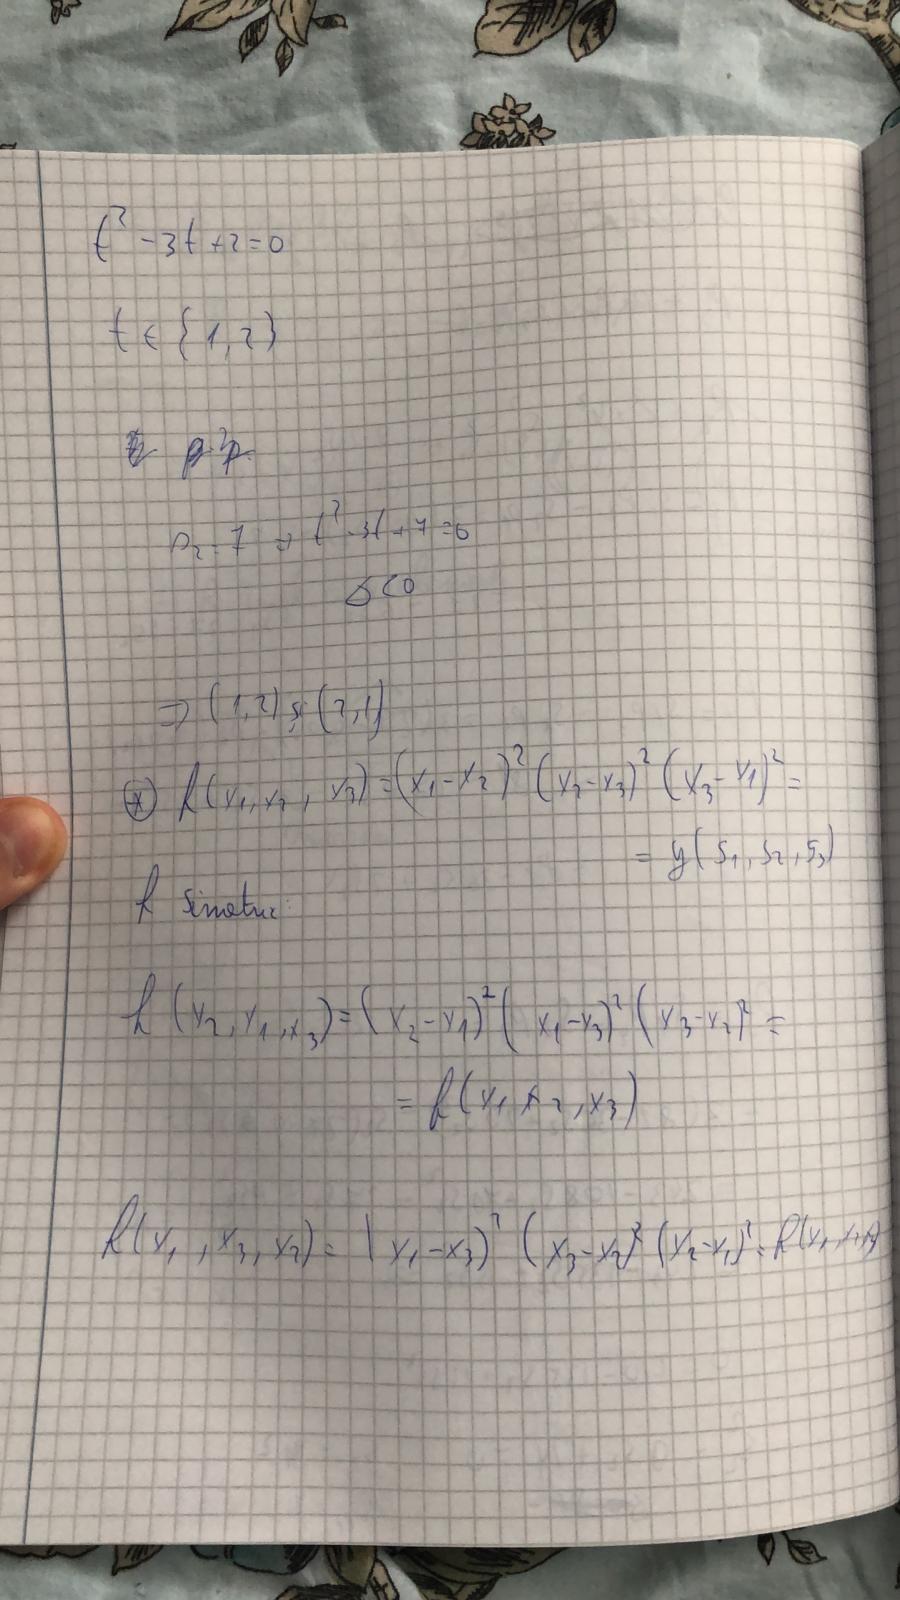 t² - 3t + 2 = 0
t ∈ {1, 2}
s₂ = 7 ⇒ t² - 3t + 7 = 0
Δ < 0
⇒ (1, 2) și (2, 1)
(*) f(x₁, x₂, x₃) = (x₁ - x₂)² (x₂ - x₃)² (x₃ - x₁)² =
= g(s₁, s₂, s₃)
f simetric:
f(x₂, x₁, x₃) = (x₂ - x₁)² (x₁ - x₃)² (x₃ - x₂)² =
= f(x₁ x₂, x₃)
f(x₁, x₃, x₂) = (x₁ - x₃)² (x₃ - x₂)² (x₂ - x₁)² = f(x₁, x₂, x₃)